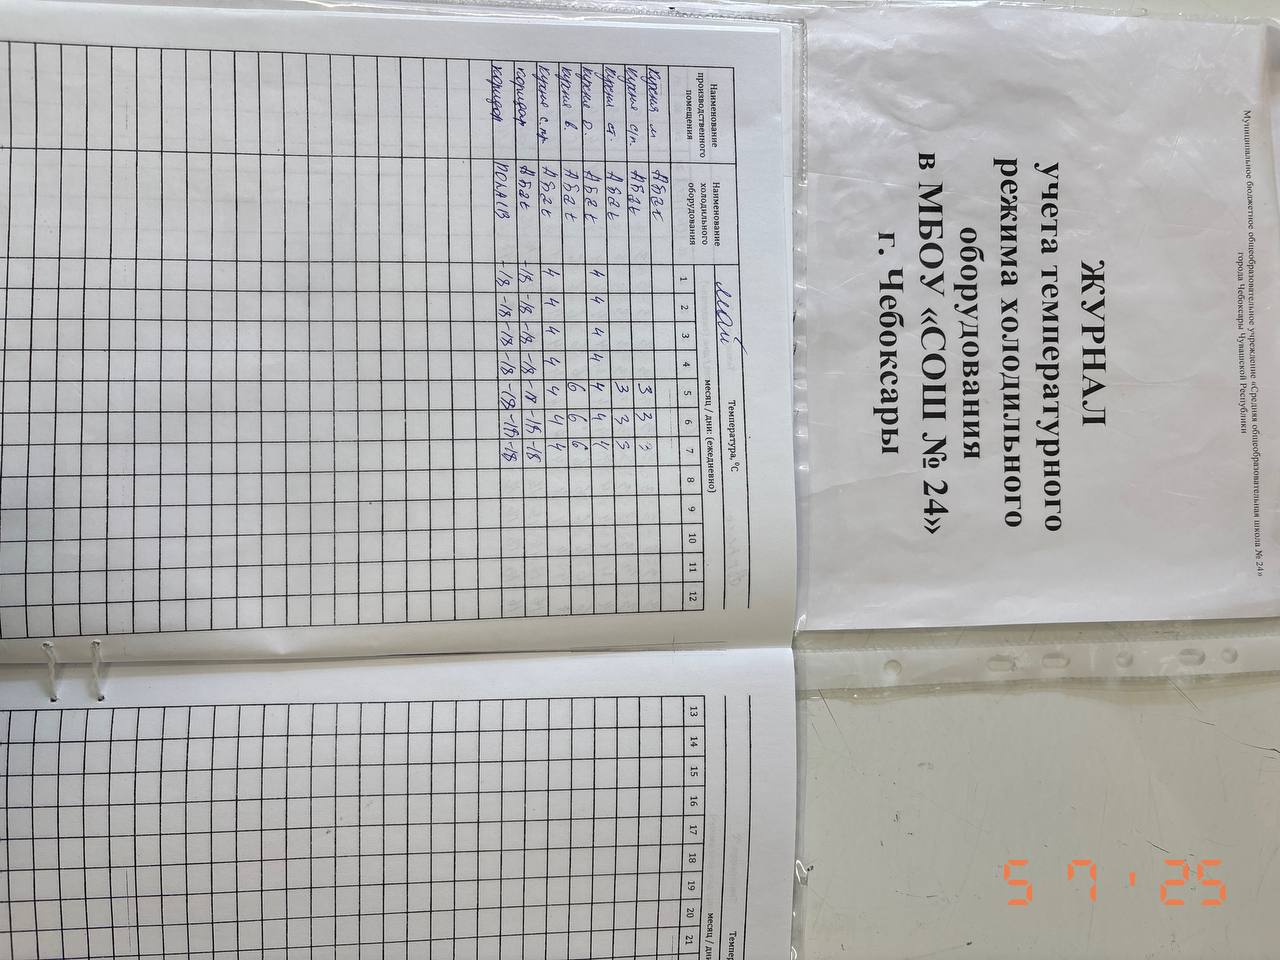 Муниципальное бюджетное общеобразовательное учреждение «Средняя общеобразовательная школа № 24»
города Чебоксары Чувашской Республики
ЖУРНАЛ
учета температурного
режима холодильного
оборудования
в МБОУ «СОШ № 24»
г. Чебоксары
май
Температура, °С
Наименование производственного помещения
Наименование холодильного оборудования
месяц / дни: (ежедневно)
1 2 3 4 5 6 7 8 9 10 11 12
Кухня м Абат 3 3 3
Кухня с/п. Абат
Кухня ст. Абат 3 3 3
Кухня О. Абат 4 4 4 4 4 4 4
Кухня в. Абат 6 6 6
Кухня с.пр Абат 4 4 4 4 4 4 4
коридор Абат -18 -18 -18 -18 -18 -18 -18
коридор ПОЛАIВ -18 -18 -18 -18 -18 -19 -18
Темпер
месяц / дн
13 14 15 16 17 18 19 20 21
5 7 ' 25